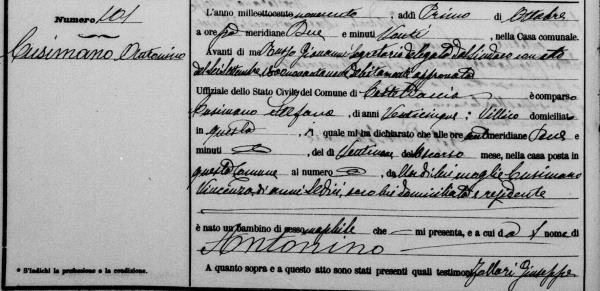 Numero 101
Cusimano Antonino
L'anno millottocentonovecento, addì Primo di Ottobre
a ore pō meridiane Due e minuti Venti, nella Casa comunale.
Avanti di me Giovanni Segretario delegato dal Sindaco con atto
debitamente approvato
Uffiziale dello Stato Civile del Comune di è comparso
Cusimano Stefano, di anni Venticinque: Villico domiciliato
in questo, il quale mi ha dichiarato che alle ore antimeridiane e
minuti, del dì del scorso mese, nella casa posta in
questo Comune al numero, da sua moglie Cusimano
Vincenza, di anni Sedici, seco lui domiciliata e residente
è nato un bambino di sesso maschile che mi presenta, e a cui dà il nome di
Antonino
A quanto sopra e a questo atto sono stati presenti quali testimoni Giuseppe
* S'indichi la professione o la condizione.